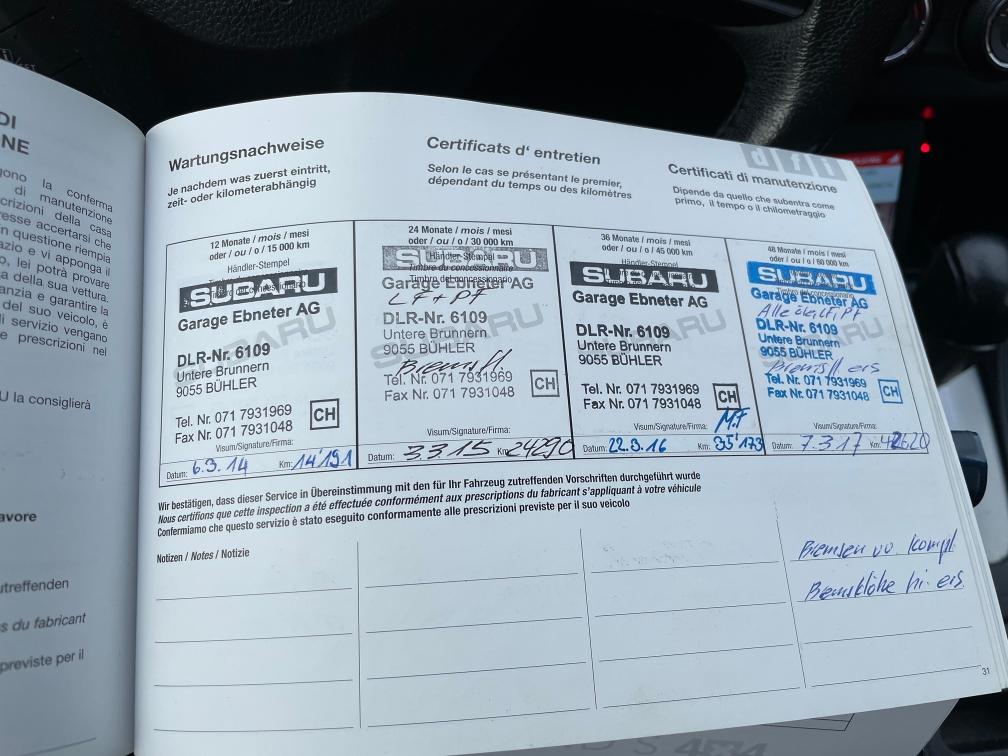 DI
NE
gono la conferma
di manutenzione
crizioni della casa
resse accertarsi che
n questione riempia
azio e vi apponga il
o, lei potrà provare
a della sua vettura.
anzia e garantire la
del suo veicolo, è
di servizio vengano
e prescrizioni nel
U la consiglierà
avore
utreffenden
s du fabricant
previste per il
dfi
Wartungsnachweise
Je nachdem was zuerst eintritt,
zeit- oder kilometerabhängig
Certificats d' entretien
Selon le cas se présentant le premier,
dépendant du temps ou des kilomètres
Certificati di manutenzione
Dipende da quello che subentra come
primo, il tempo o il chilometraggio
12 Monate / mois / mesi
oder / ou / o / 15 000 km
Händler-Stempel
SUBARU
Garage Ebneter AG
DLR-Nr. 6109
Untere Brunnern
9055 BÜHLER
Tel. Nr. 071 7931969
Fax Nr. 071 7931048
CH
Visum/Signature/Firma:
Datum: 6.3.14 Km: 14'191
24 Monate / mois / mesi
oder / ou / o / 30 000 km
Händler-Stempel
SUBARU
Timbre du concessionnaire
Timbro del concessionario
Garage Ebneter AG
LF+PF
DLR-Nr. 6109
Untere Brunnern
9055 BÜHLER
Bremsfl.
Tel. Nr. 071 7931969
Fax Nr. 071 7931048
CH
Visum/Signature/Firma:
Datum: 3.3.15 Km: 24290
36 Monate / mois / mesi
oder / ou / o / 45 000 km
Händler-Stempel
SUBARU
Garage Ebneter AG
DLR-Nr. 6109
Untere Brunnern
9055 BÜHLER
Tel. Nr. 071 7931969
Fax Nr. 071 7931048
CH
Visum/Signature/Firma:
Datum: 22.3.16 Km: 35'173
48 Monate / mois / mesi
oder / ou / o / 60 000 km
Händler-Stempel
SUBARU
Garage Ebneter AG
DLR-Nr. 6109
Untere Brunnern
9055 BÜHLER
Bremsfl ers
Tel. Nr. 071 7931969
Fax Nr. 071 7931048
CH
Visum/Signature/Firma:
Datum: 7.3.17 Km:
Wir bestätigen, dass dieser Service in Übereinstimmung mit den für Ihr Fahrzeug zutreffenden Vorschriften durchgeführt wurde
Nous certifions que cette inspection a été effectuée conformément aux prescriptions du fabricant s'appliquant à votre véhicule
Confermiamo che questo servizio è stato eseguito conformamente alle prescrizioni previste per il suo veicolo
Notizen / Notes / Notizie
Bremsen vo. kompl.
Bremsklötze hi. ers.
31